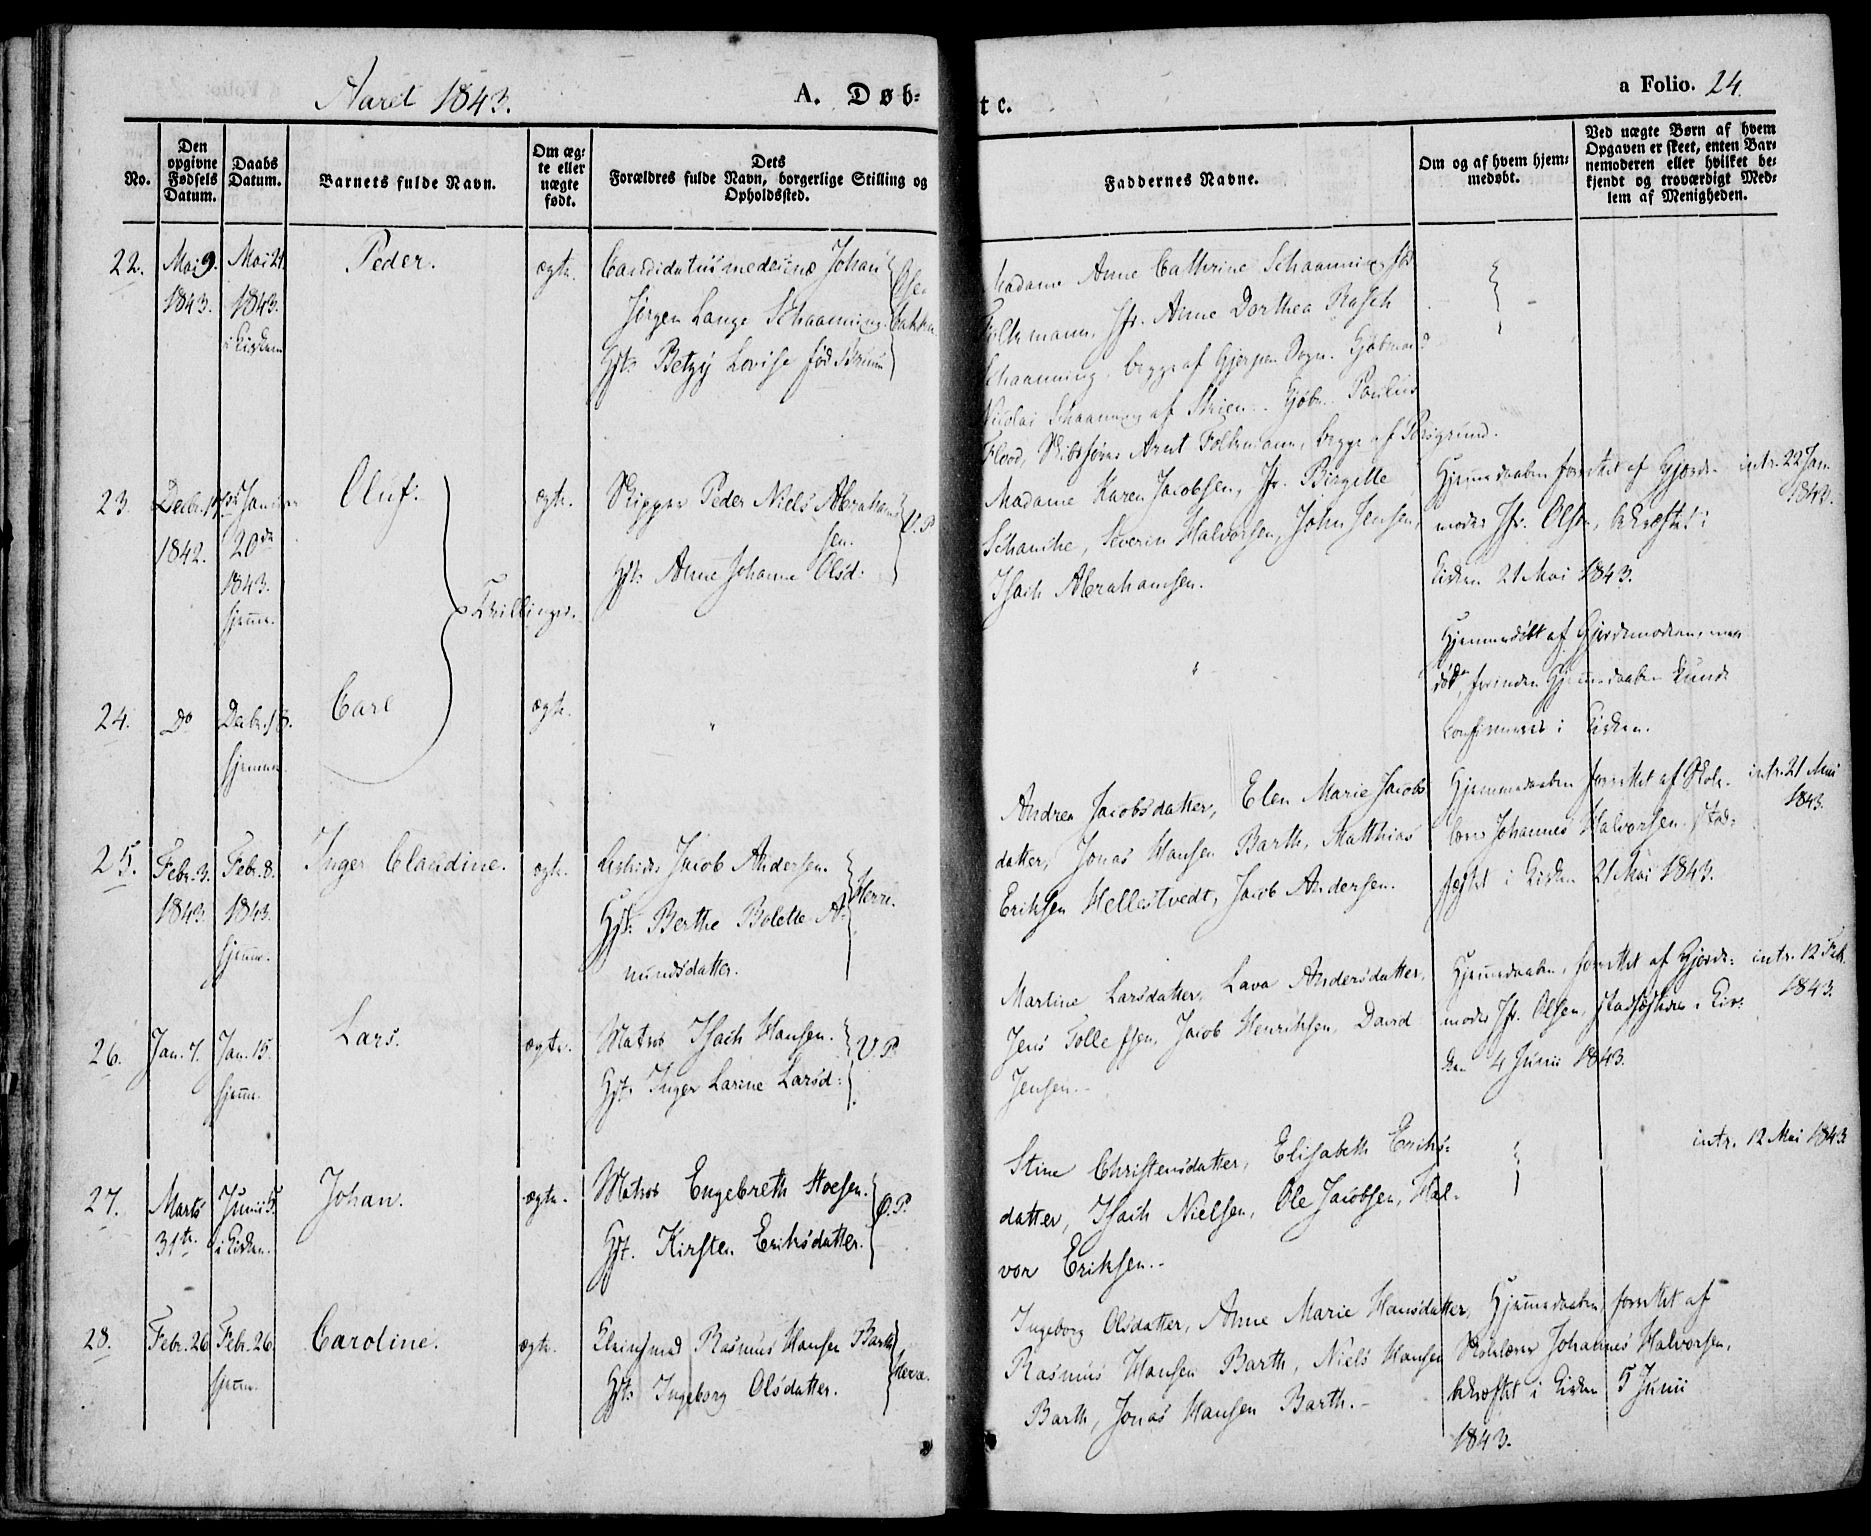 Aaret 1843.
A. Døb-
t c.
a Folio. 24.
No.
Den opgivne Fødsels Datum.
Daabs Datum.
Barnets fulde Navn.
Om æg-te eller nægte født.
Dets Forældres fulde Navn, borgerlige Stilling og Opholdssted.
Faddernes Navne.
Om og af hvem hjem-medøbt.
Ved nægte Børn af hvem Opgaven er skeet, enten Bar-nemoderen eller hvilket be-kjendt og troværdigt Med-lem af Menigheden.
22.
Mai 9.
1843.
Mai 21
1843.
i Kirken
Peder.
ægte.
Candidatus medecinæ Johan
Jørgen Lange Schaanning.
Hst: Betzy Lovise fød Bruun
Madame Anne Cathrine Schaanning, Jfr
Folkmann, Jfr. Anne Dorthea Rasch
Schaanning, begge af Gjerpen Sogn.
Nicolai Schaanning af Skien. Kjøbm. Paulus
Flood, Skibsfører Arnt Folkmann, begge af Porsgrund.
23.
Decbr.
1842.
20de
1843.
hjemme.
Oluf:
ægte.
Skipper Peder Niels Abraham-
sen.
Hst: Anne Johanne Olsd:
V. P.
Madame Karen Jacobsen, Jfr. Birgitte
Schanche, Severin Halvorsen, John Jensen,
Isach Abrahamsen.
Hjemmedaaben forrettet af Gjorde-
moder Jfr. Olsen, bekræftet i
Kirken 21 Mai 1843.
intr. 22 Jan.
1843.
Tvillinger.
24.
Do
Decbr. 18.
hjemme
Carl
ægte.
"
"
Hjemmedøbt af Gjordemoderen, men
død, forinden Hjemmedaaben kunde
confirmeres i Kirken.
25.
Febr. 3.
1843.
Febr. 8.
1843.
hjemme.
Inger Claudine.
ægte.
Jacob Andersen.
Hst: Berthe Bolette A-
mundsdatter.
Herre.
Andrea Jacobsdatter, Elen Marie Jacobs
datter, Jonas Hansen Barth, Matthias
Eriksen Hellestvedt, Jacob Andersen.
Hjemmedaaben forrettet af Skole-
lærer Johannes Halvorsen, stad-
fæstet i Kirken 21 Mai 1843.
intr. 21 Mai
1843.
26.
Jan. 7.
Jan. 15.
hjemme.
Lars.
ægte.
Matros Isach Hansen.
Hst: Inger Larine Larsd:
V. P.
Martine Larsdatter, Lava Andersdatter,
Jens Tollefsen, Jacob Henriksen, David
Jensen.-
Hjemmedaaben, forrettet af Gjorde-
moder Jfr. Olsen, stadfæstedes i Kir-
ken 4 Junii 1843.
intr. 12 Feb.
1843.
27.
Marts
31te.
Junii 5.
i Kirken.
Johan.
ægte.
Matros Engebreth Stoesen.
Hst. Kirsten Eriksdatter.
Ø. P.
Stine Christensdatter, Elisabeth Eriks-
datter, Isach Nielsen, Ole Jacobsen, Hal-
vor Eriksen.-
intr. 12 Mai 1843
28.
Febr. 26
Febr. 26.
hjemme.
Caroline.
ægte.
Rasmus Hansen Barth
Hst: Ingeborg Olsdatter.
Herre.
Ingeborg Olsdatter, Anne Marie Hansdatter,
Rasmus Hansen Barth, Niels Hansen
Barth, Jonas Hansen Barth.-
Hjemmedaaben, forrettet af
Skolelærer Johannes Halvorsen,
bekræftet i Kirken 5 Junii
1843.